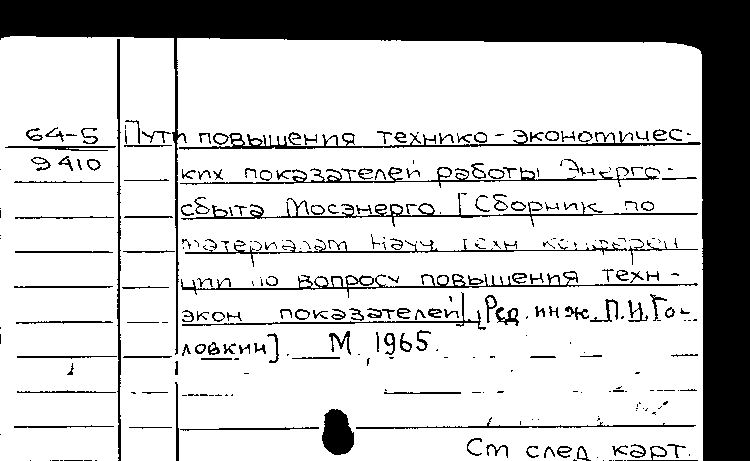 64-5 Пути повышения технико-экономичес-
9410 ких показателей работы Энерго-
сбыта Мосэнерго. [Сборник по
материалам науч. техн конферен
ции по вопросу повышения техн-
экон показателей]. [Ред. инж. П.И. Го-
ловкин]. М, 1965.
См след. карт.